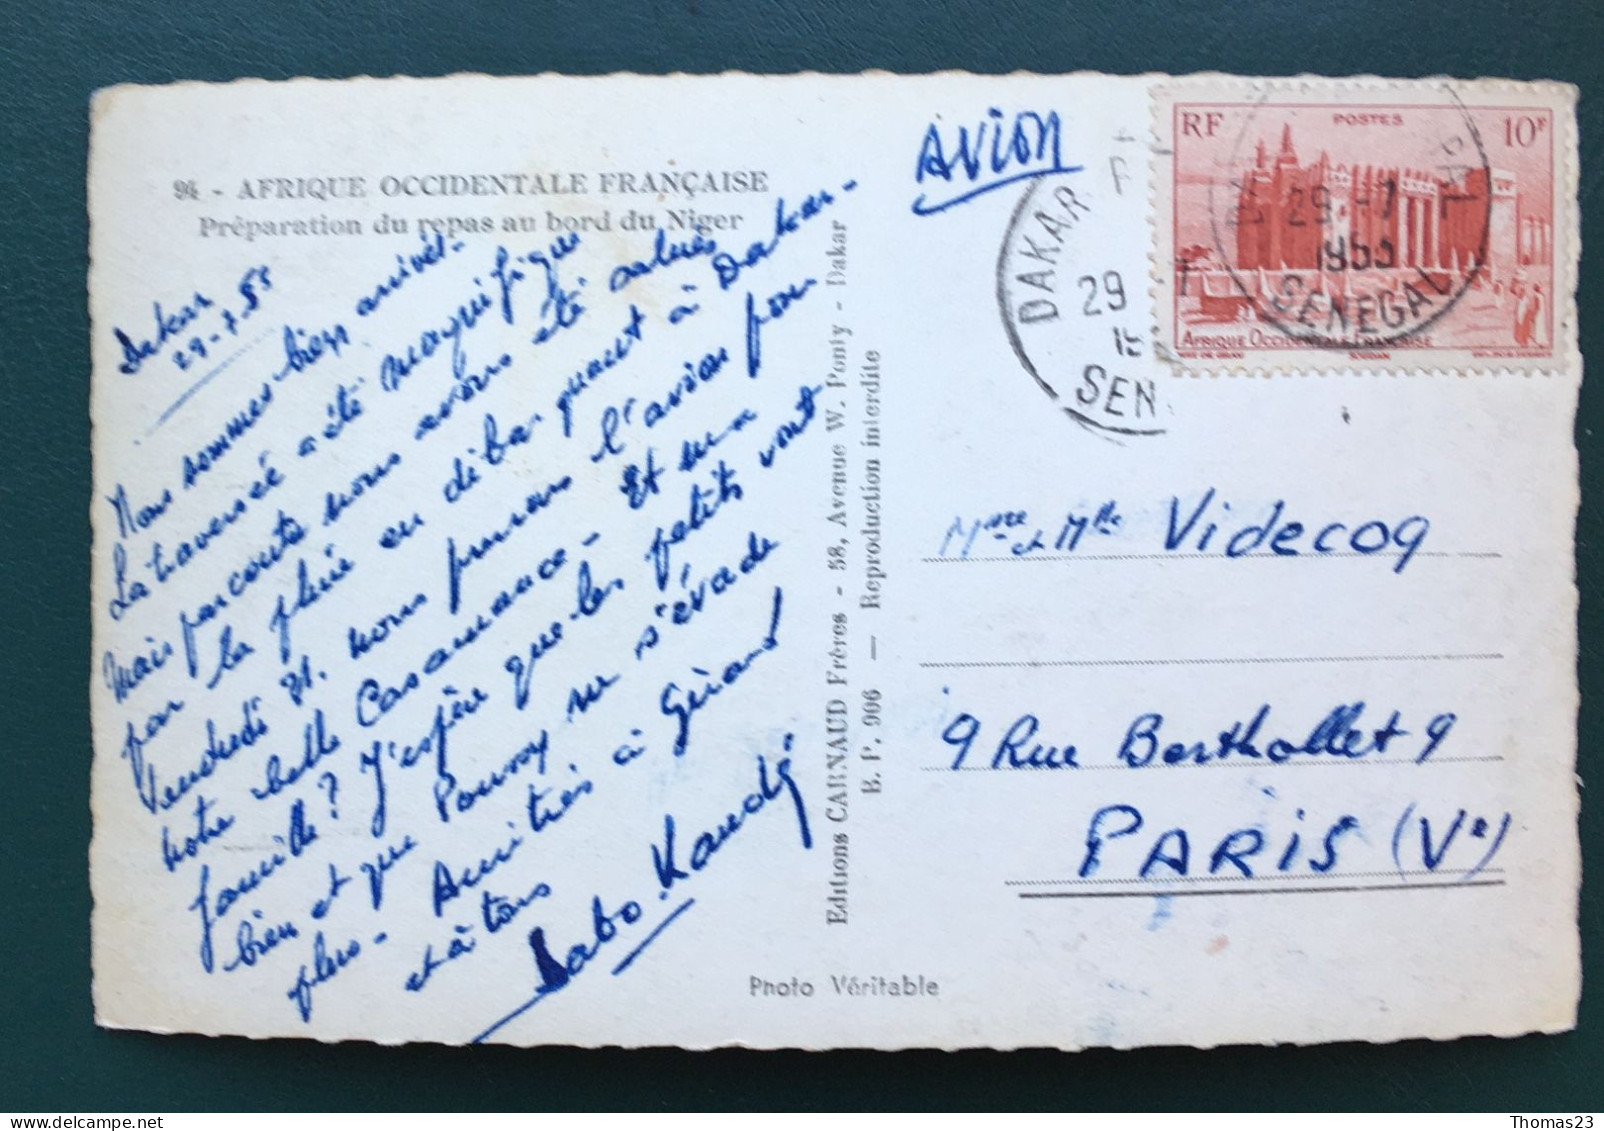 94 - AFRIQUE OCCIDENTALE FRANÇAISE
Préparation du repas au bord du Niger
Dakar
29-7-55
Nous sommes bien arrivés -
La traversée a été magnifique
mais par contre nous avons été salués
par la pluie au débarquant à Dakar -
Vendredi nous prenons l'avion pour
notre belle Casamance - Et
famille ? J'espère que les petits vont
bien et que Poussy ne s'évade
plus - Amitiés à Gérard
et à tous
Kandé
Editions CARNAUD Frères - 58, Avenue W. Ponty - Dakar
B. P. 906 — Reproduction interdite
Photo Véritable
AVION
RF POSTES 10F
AFRIQUE OCCIDENTALE FRANÇAISE
DAKAR
29 -7
1955
SENEGAL
DAKAR
29
SEN
Mme & Mlle Videcoq
9 Rue Berthollet 9
PARIS (Ve)
Thomas23